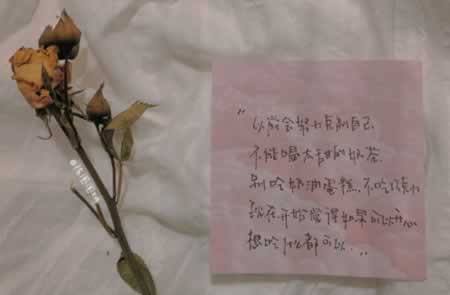 “以前会努力克制自己
不能喝太甜的奶茶
别吃奶油蛋糕,不吃
现在开始觉得如果可以开心
想吃什么都可以.„